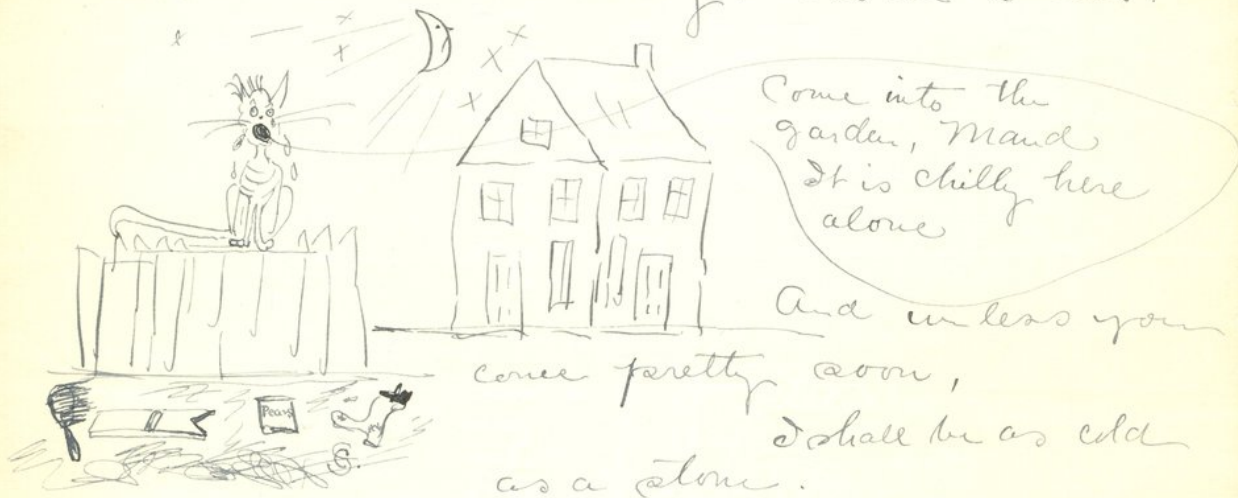 Come into the
garden, Maud
It is chilly here
alone
And unless you
come pretty soon,
I shall be as cold
as a stone.
Pears
S.